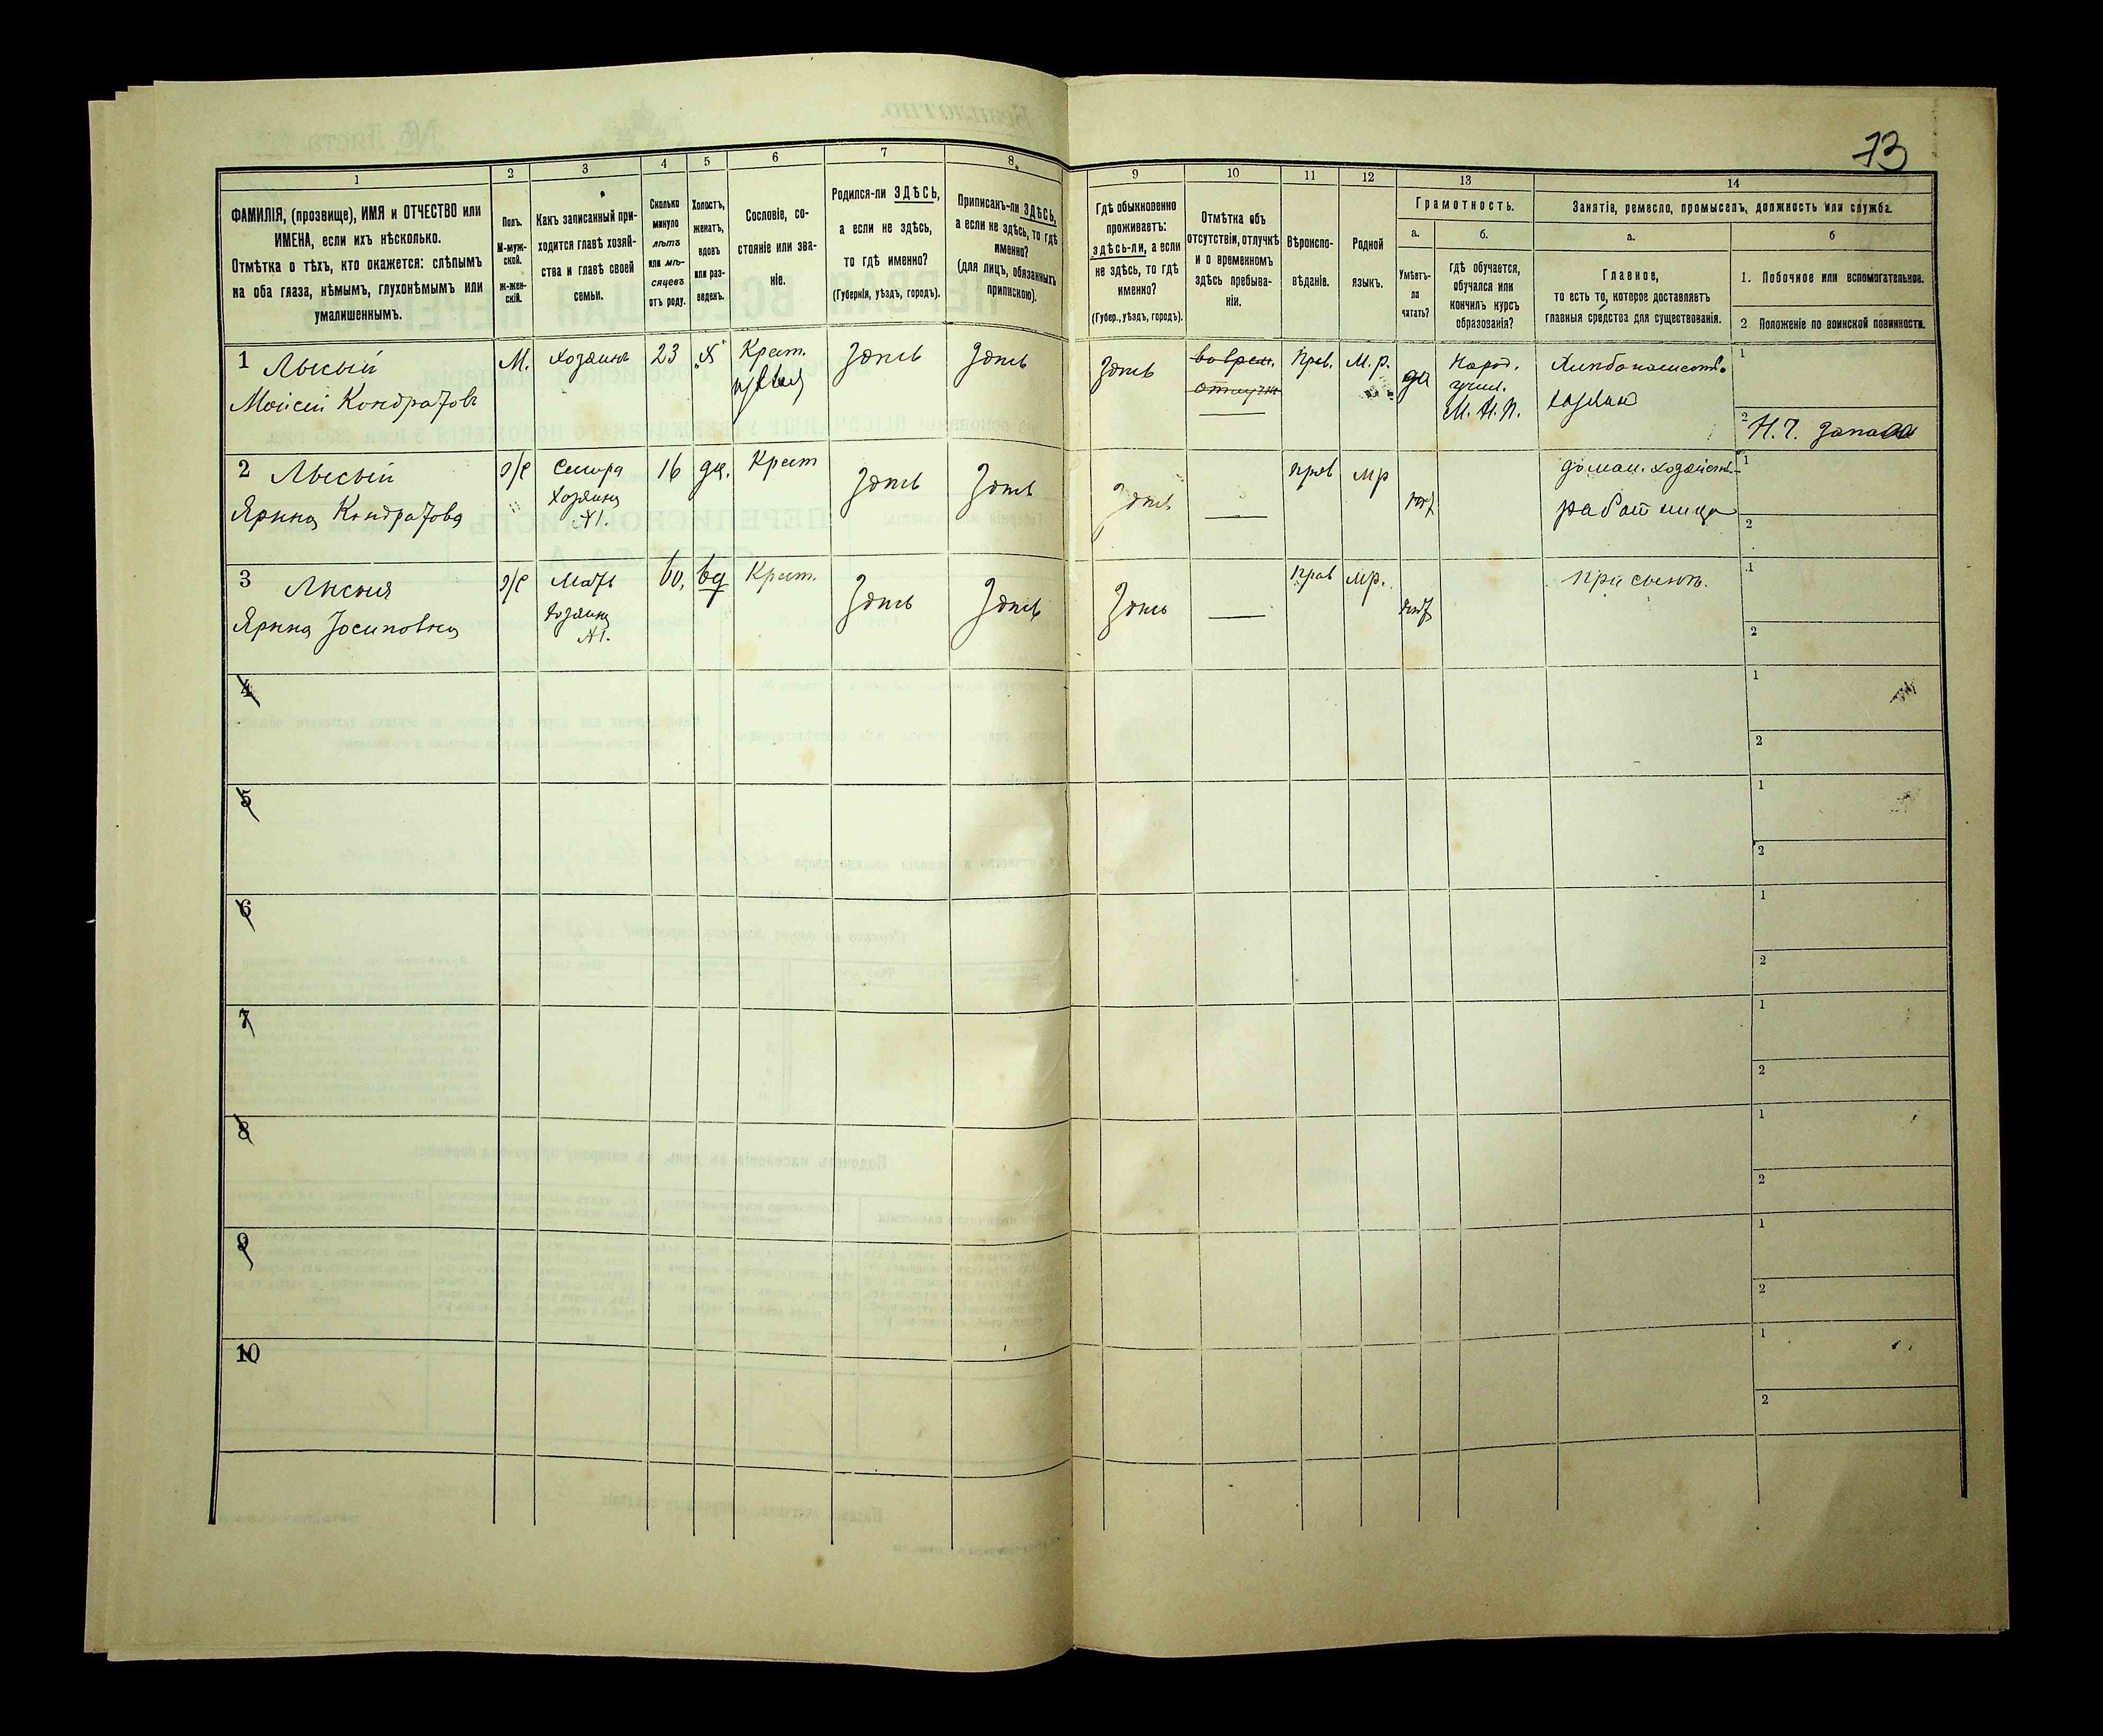 73
1
2
3
4
5
6
7
8
9
10
11
12
13
14
ФАМИЛІЯ, (прозвище), ИМЯ и ОТЧЕСТВО или
ИМЕНА, если ихъ нѣсколько.
Отмѣтка о тѣхъ, кто окажется: слѣпымъ
на оба глаза, нѣмымъ, глухонѣмымъ или
умалишеннымъ.
Полъ.
М-муж-
ской.
ж-жен-
скій.
Какъ записанный при-
ходится главѣ хозяй-
ства и главѣ своей
семьи.
Сколько
минуло
лѣтъ
или мѣ-
сяцевъ
отъ роду.
Холостъ,
женатъ,
вдовъ
или раз-
веденъ.
Сословіе, со-
стояніе или зва-
ніе.
Родился-ли ЗДѢСЬ,
а если не здѣсь,
то гдѣ именно?
(Губернія, уѣздъ, городъ).
Приписанъ-ли ЗДѢСЬ,
а если не здѣсь, то гдѣ
именно?
(для лицъ, обязанныхъ
припискою).
Гдѣ обыкновенно
проживаетъ:
здѣсь-ли, а если
не здѣсь, то гдѣ
именно?
(Губер., уѣздъ, городъ).
Отмѣтка объ
отсутствіи, отлучкѣ
и о временномъ
здѣсь пребыва-
ніи.
Вѣроиспо-
вѣданіе.
Родной
языкъ.
Грамотность.
а.
б.
Умѣетъ-
ли
читать?
гдѣ обучается,
обучался или
кончилъ курсъ
образованія?
Занятіе, ремесло, промыселъ, должность или служба.
а.
б
Главное,
то есть то, которое доставляетъ
главныя средства для существованія.
1. Побочное или вспомогательное.
2. Положеніе по воинской повинности.
1 Лысый
Моисей Кондратовъ
М.
хозяинъ
23
Х
Крест.
Здѣсь
Здѣсь
Здѣсь
во врем.
отлучк
Прав.
М. р.
да
Народ.
учил.
М. Н. П.
Хлѣбопашество
хозяин
1
2 Н. Ч. запаса
2 Лысый
Ярина Кондратова
ж
Сестра
хозяина
№1.
16
дѣ.
Крест
Здѣсь
Здѣсь
Здѣсь
—
прав
мр
нѣт
домаш. хозяйств.
работница
1
2
3 Лысыя
Ярина Іосиповна
ж
Мать
хозяина
№1.
60,
вд
Крест.
Здѣсь
Здѣсь
Здѣсь
—
прав
мр.
нѣт
при сынѣ.
1
2
4
1
2
5
1
2
6
1
2
7
1
2
8
1
2
9
1
2
10
1
2